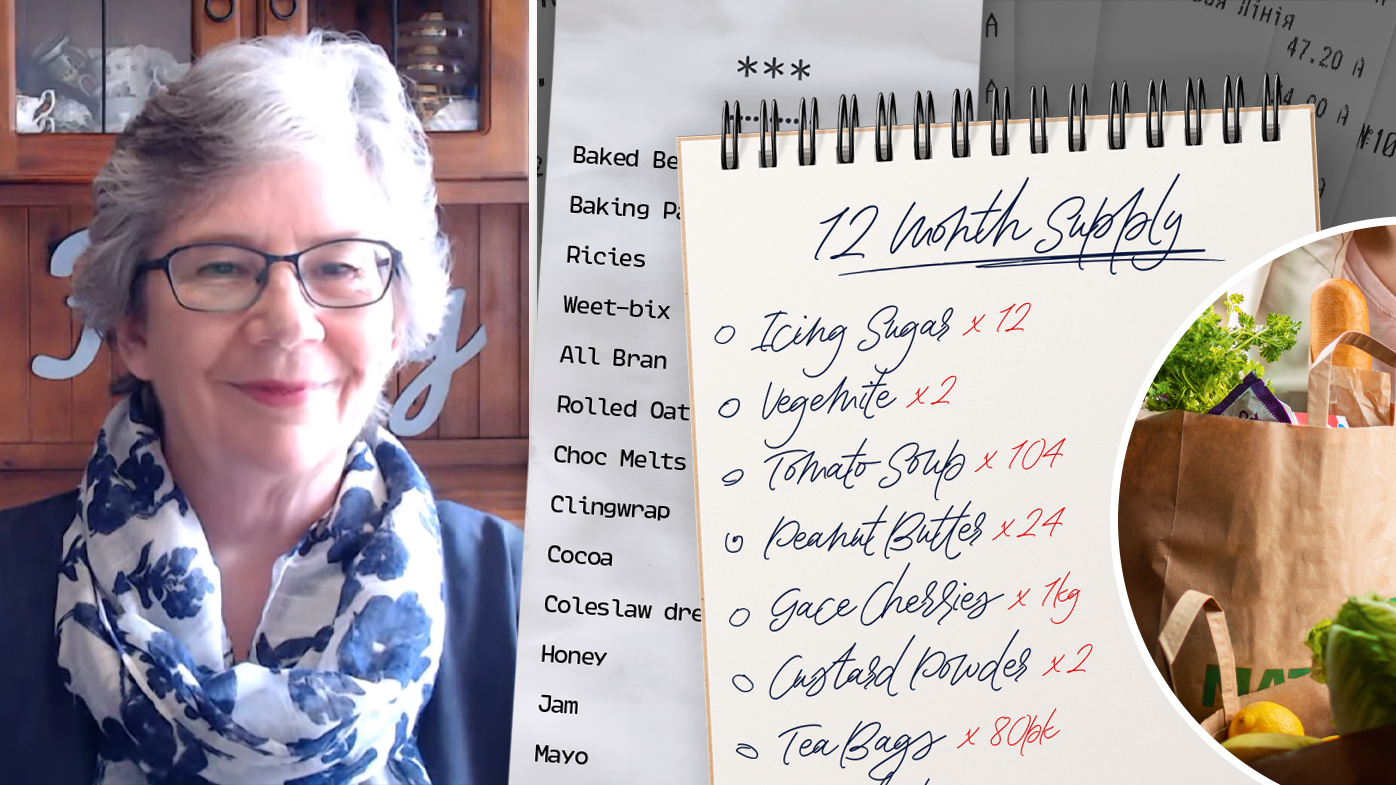 ***
Baked Be
Baking Pa
Ricies
Weet-bix
All Bran
Rolled Oat
Choc Melts
Clingwrap
Cocoa
Coleslaw dre
Honey
Jam
Mayo
12 Month Supply
Icing Sugar x 12
Vegemite x2
Tomato Soup x 104
Peanut Butter x24
Gace Cherries x 1kg
Custard Powder x2
Tea Bags x 80pk
лінія
47.20 А
А
А